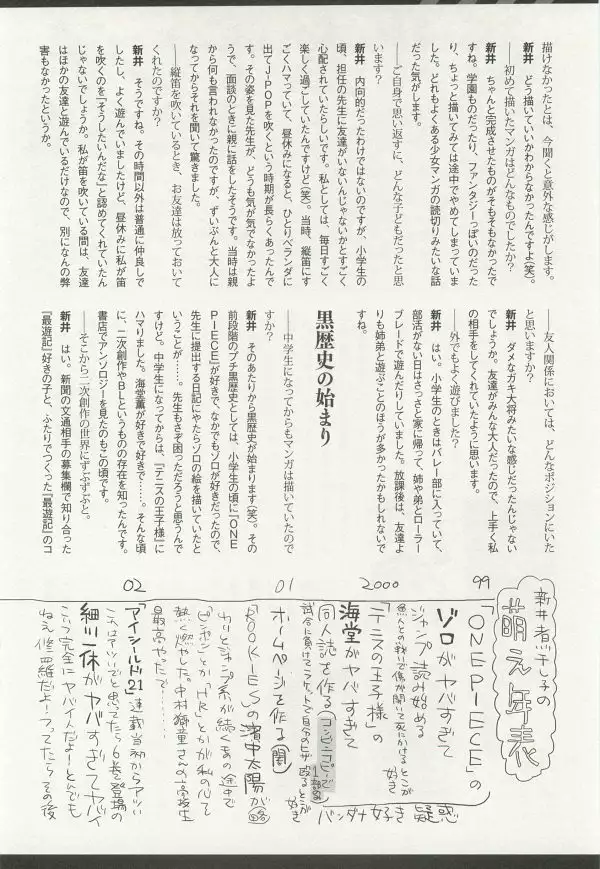 描けなかったとは、今聞くと意外な感じがします。
新井　どう描いていいかわからなかったんですよ(笑)。
――初めて描いたマンガはどんなものでしたか？
新井　ちゃんと完成させたものがそもそもなかったで
すね。学園ものだったり、ファンタジーっぽいのだった
り、ちょっと描いてみては途中でやめてしまっていま
した。どれもよくある少女マンガの読切りみたいな話
だった気がします。
――ご自身で思い返すに、どんな子どもだったと思
います？
新井　内向的だったわけではないのですが、小学生の
頃、担任の先生に友達がいないんじゃないかとすごく
心配されていたらしいです。私としては、毎日すごく
楽しく過ごしていたんですけど(笑)。当時、縦笛にす
ごくハマっていて、昼休みになると、ひとりベランダに
出てJ-POPを吹くという時期が長らくあったんで
す。その姿を見た先生が、どうも気が気でなかったよ
うで、面談のときに親に話をしたそうです。当時は親
から何も言われなかったのですが、ずいぶんと大人に
なってからそれを聞いて驚きました。
――縦笛を吹いているとき、お友達は放っておいて
くれたのですか？
新井　そうですね。その時間以外は普通に仲良しで
したし、よく遊んでいましたけど、昼休みに私が笛
を吹くのを「そうしたいんだな」と認めてくれていたん
じゃないでしょうか。私が笛を吹いている間は、友達
はほかの友達と遊んでいるだけなので、別になんの弊
害もなかったというか。
――友人関係においては、どんなポジションにいた
と思いますか？
新井　ダメなガキ大将みたいな感じだったんじゃない
でしょうか。友達がみんな大人だったので、上手く私
の相手をしてくれていたように思います。
――外でもよく遊びました？
新井　はい。小学生のときはバレー部に入っていて、
部活がない日はさっさと家に帰って、姉や弟とローラー
ブレードで遊んだりしていました。放課後は、友達よ
りも姉弟と遊ぶことのほうが多かったかもしれないで
すね。
黒歴史の始まり
――中学生になってからもマンガは描いていたので
すか？
新井　そのあたりから黒歴史が始まります(笑)。その
前段階のプチ黒歴史としては、小学生の頃に『ONE
PIECE』が好きで、なかでもゾロが好きだったので、
先生に提出する日記にやたらゾロの絵を描いていたと
いうことが……。先生もさぞ困っただろうと思うんで
すけど。中学生になってからは、『テニスの王子様』に
ハマりました。海堂薫が好きで好きで……。そんな頃
に、二次創作やBLというものの存在を知ったんです。
書店でアンソロジーを見たのもこの頃です。
――そこから二次創作の世界にずぶずぶと。
新井　はい。新聞の文通相手の募集欄で知り合った
『最遊記』好きの子と、ふたりでつくった『最遊記』のコ
新井煮干し子の
萌え年表
99
「ONEPIECE」の
ゾロがヤバすぎて
ジャンプ読み始める
魚人との戦いで傷が開いて死にかけるとこが
好き
2000
「テニスの王子様」の
海堂がヤバすぎて
同人誌を作る(コンビニコピーで
1部のみ
試合に負けてラケットで自分のヒザ殴るとこが
好き
バンダナ好き疑惑
01
ホームページを作る(闇)
「ROOKIES」の濱中太陽が(略)
わりとジャンプ系が続くあの途中で
「ピンポン」とか「HR」とかが私の心を
熱く燃やした。中村獅童さんの高校生
最高やったで……
02
「アイシールド21」連載当初からアツい
これはアツいぞと思ってたら6巻で登場の
細川一休がヤバすぎてヤバイ
こいつ完全にヤバイんだよ！とんでも
ねえ修羅だよ！つってたらその後